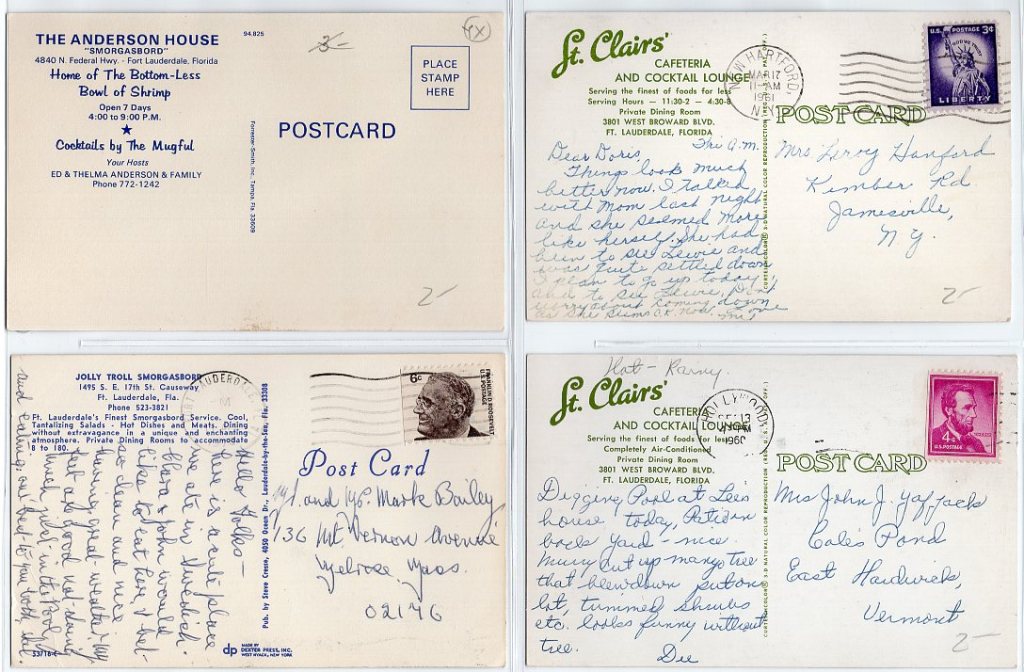 THE ANDERSON HOUSE
"SMORGASBORD"
4840 N. Federal Hwy. - Fort Lauderdale, Florida
Home of The Bottom-Less
Bowl of Shrimp
Open 7 Days
4:00 to 9:00 P.M.
★
Cocktails by The Mugful
Your Hosts
ED & THELMA ANDERSON & FAMILY
Phone 772-1242
94,825
3-
YX
PLACE
STAMP
HERE
POSTCARD
Forrester Smith, Inc. Tampa, Fla. 33609
2-
St. Clairs'
CAFETERIA
AND COCKTAIL LOUNGE
Serving the finest of foods for less
Serving Hours — 11:30-2 - 4:30-8
Private Dining Room
3801 WEST BROWARD BLVD.
FT. LAUDERDALE, FLORIDA
NEW HARTFORD,
MAR 17
11-AM
1961
N.Y.
U.S. POSTAGE 3¢
IN GOD WE TRUST
LIBERTY
POST CARD
CURTEICHCOLOR® 3-D NATURAL COLOR REPRODUCTION (REG. U.S.A. PAT. OFF.)
A.M.
Dear Doris,
Things look much
better now. I talked
with Mom last night
and she seemed more
like herself. She had
been to see Lewie and
was quite settled down
I plan to go up today,
and to see Lewie. Don't
worry about coming down
as she seems O.K. now. Love
Mrs Leroy Hanford
Kimber Rd.
Jamesville,
N.Y.
2-
JOLLY TROLL SMORGASBORD
1495 S. E. 17th St. Causeway
Ft. Lauderdale, Fla.
Phone 523-3821
Ft. Lauderdale's Finest Smorgasbord Service. Cool,
Tantalizing Salads - Hot Dishes and Meats. Dining
without extravagance in a unique and enchanting
atmosphere. Private Dining Rooms to accommodate
8 to 180.
6¢
FRANKLIN D. ROOSEVELT
U.S. POSTAGE
Post Card
Hello Folks—
here is a cute place
we ate in Swedish.
Clara & John would
like to eat here,
so clean and nice
having great weather, my
feet are good not doing
much just in the Pool
and eating, our best to you both,
and Mrs Mark Bailey
136 Mt. Vernon Avenue
Melrose, Mass.
02176
Pub. by Steve Cresse, 4050 Ocean Dr., Lauderdale-by-the-Sea, Fla. 33308
dp
MADE BY
DEXTER PRESS, INC.
WEST NYACK, NEW YORK
St. Clairs'
CAFETERIA
AND COCKTAIL LOUNGE
Serving the finest of foods for less
Completely Air-Conditioned
Private Dining Room
3801 WEST BROWARD BLVD.
FT. LAUDERDALE, FLORIDA
HOLLYWOOD,
4¢
U.S. POSTAGE
POST CARD
CURTEICHCOLOR® 3-D NATURAL COLOR REPRODUCTION (REG. U.S.A. PAT. OFF.)
Digging Pool at Lee's
house today, Patio in
back yard - nice.
cut up mango tree
that blew down put on
lot, trimmed shrubs
etc. looks funny without
tree.
Dee
Mrs John J.
Coles Pond
East Hardwick,
Vermont
2-